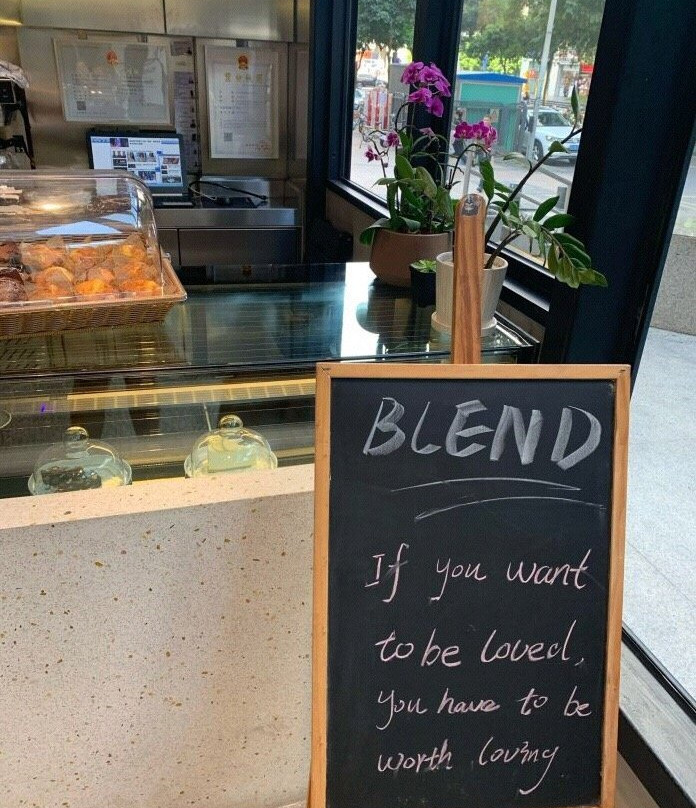 BLEND
If you want
to be loved,
you have to be
worth loving